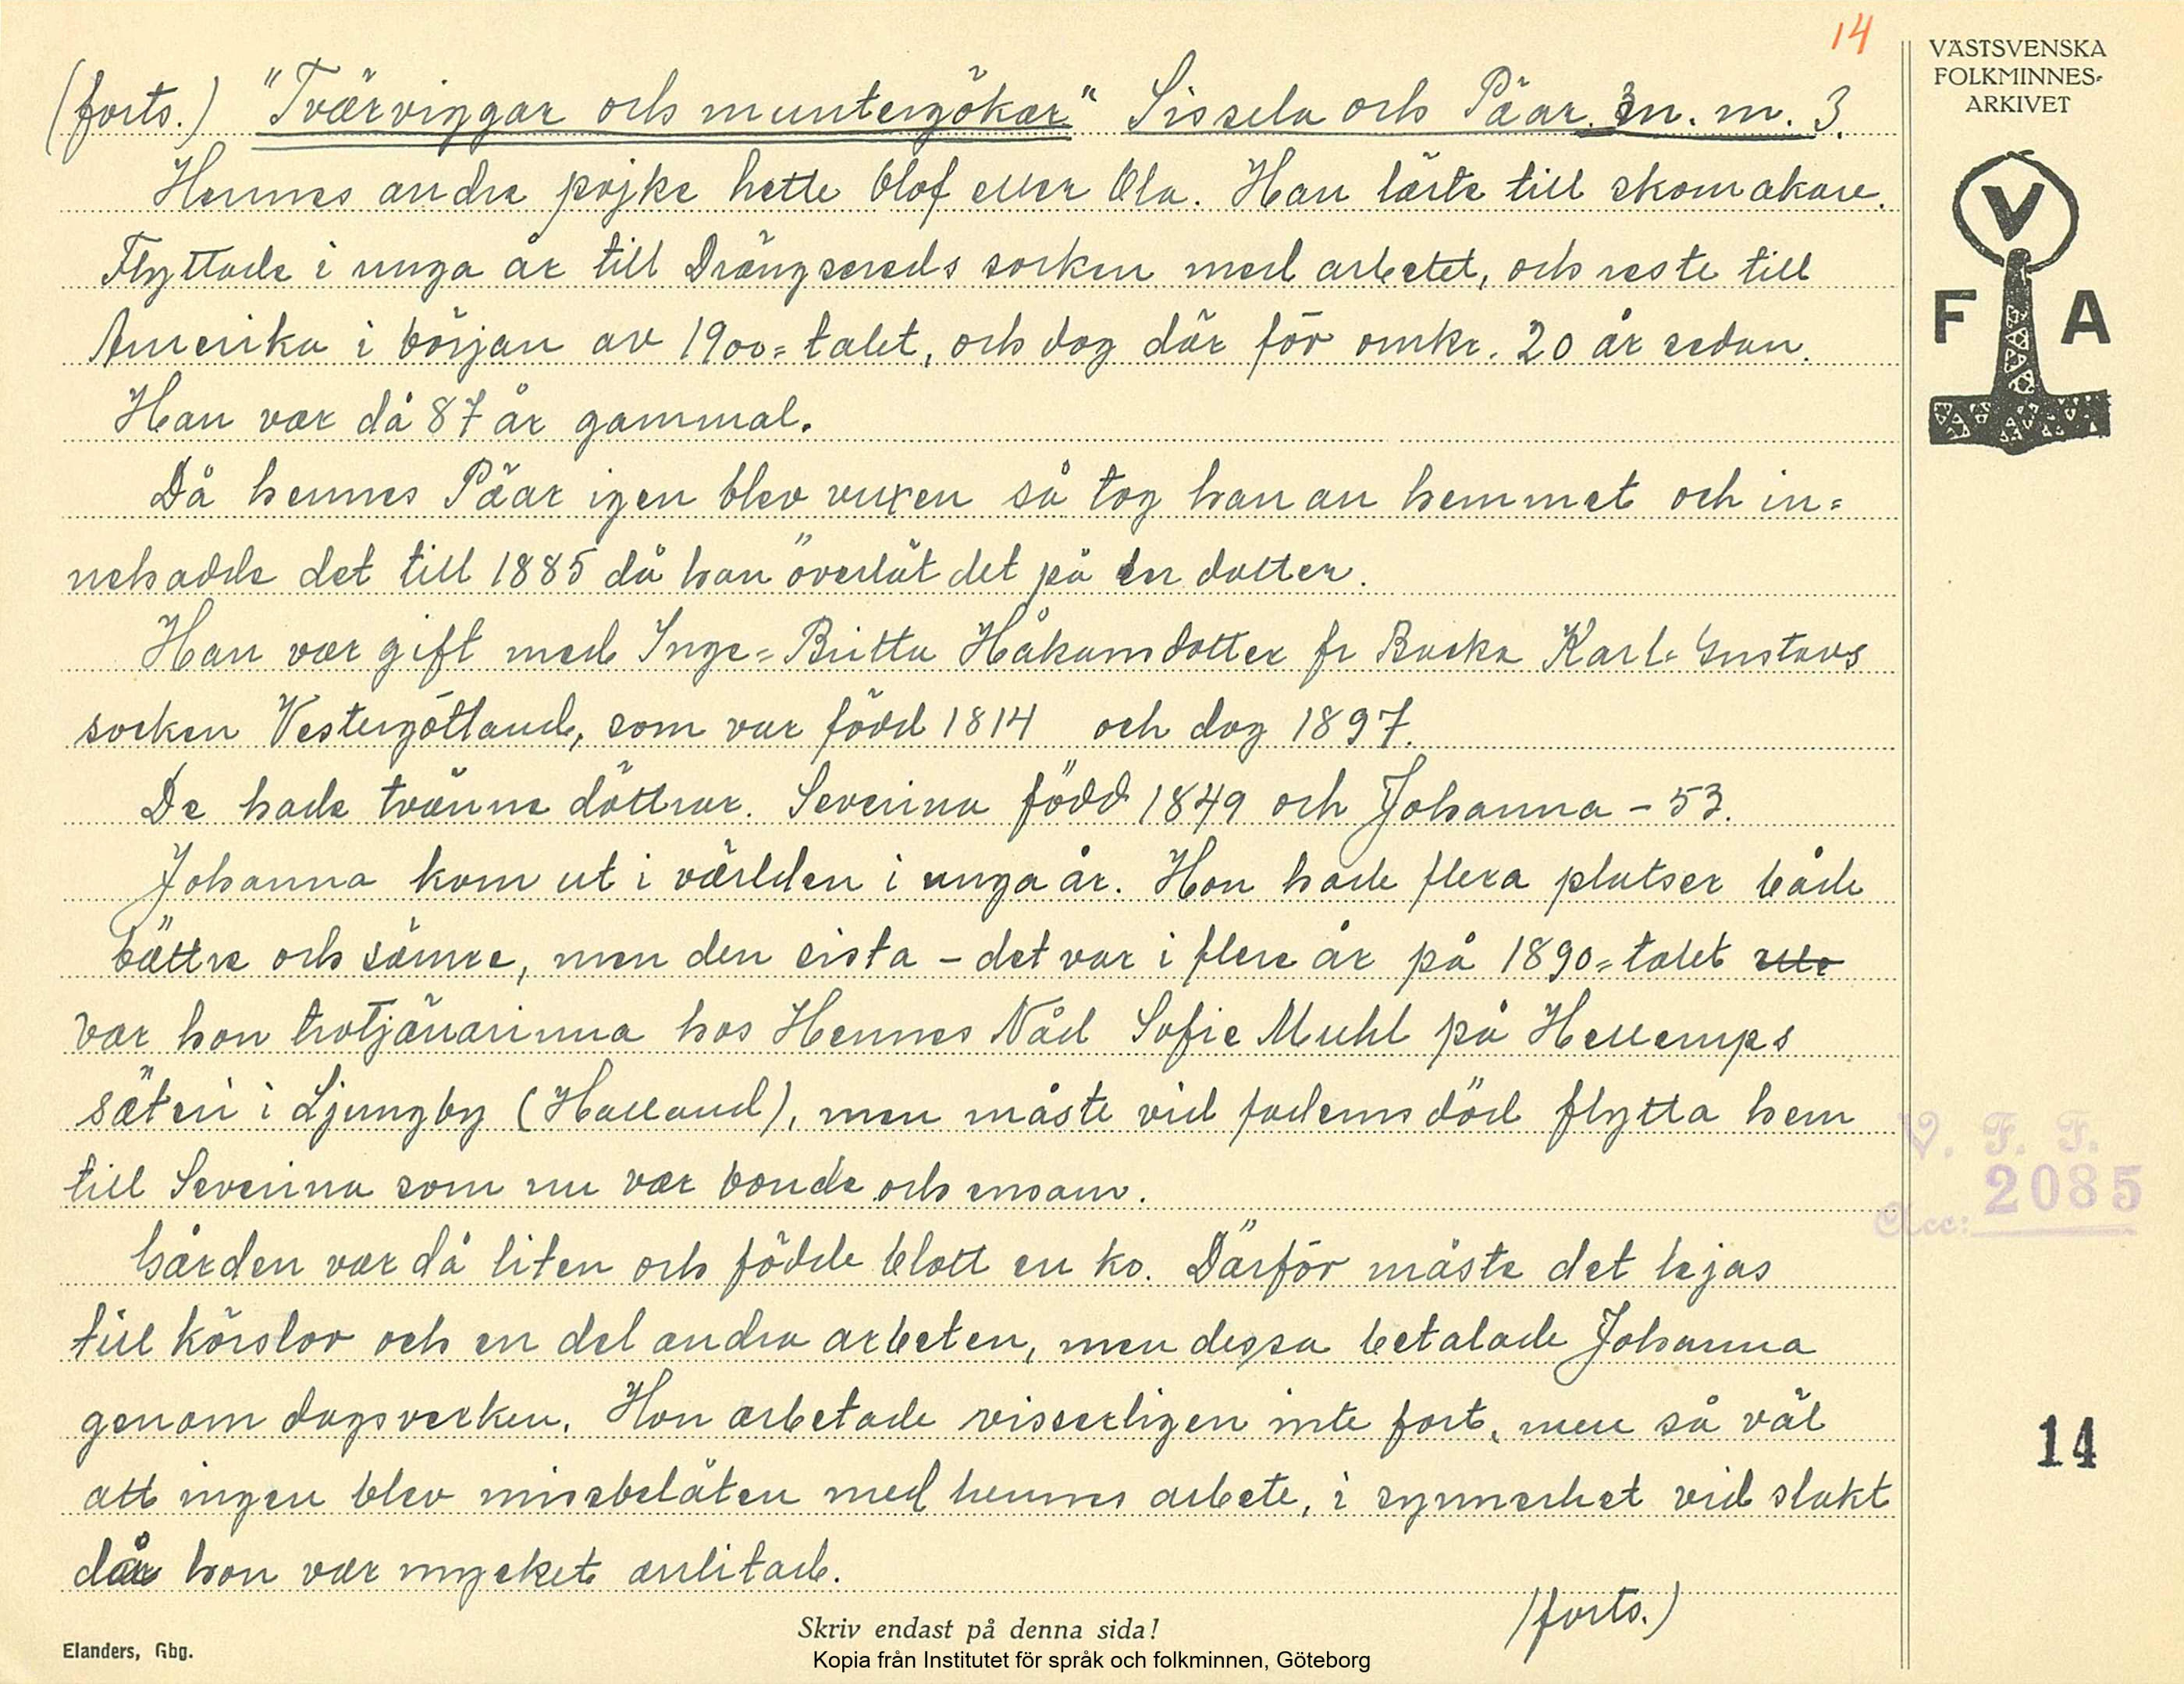 14
VÄSTSVENSKA
FOLKMINNES-
ARKIVET
V
F A
(forts.) "Tvärviggar och muntergökar" Sissela och Päar m. m. 3.
Hennes andre pojke hette Olof eller Ola. Han lärte till skomakare.
Flyttade i unga år till Drängsereds socken med arbetet, och reste till
Amerika i början av 1900=talet, och dog där för omkr. 20 år sedan.
Han var då 87 år gammal.
Då hennes Päar igen blev vuxen så tog han an hemmet och in=
nehadde det till 1885 då han överlät det på en dotter.
Han var gift med Inge=Britta Håkansdotter fr Backa Karl=Gustavs
socken Vestergötland, som var född 1814 och dog 1897.
De hade tvänne döttrar. Severina född 1849 och Johanna - 53.
Johanna kom ut i världen i unga år. Hon hade flera platser både
bättre och sämre, men den sista - det var i flere år på 1890=talet
var hon trotjänarinna hos Hennes Nåd Sofie Muhl på Hellerups
säteri i Ljungby (Halland), men måste vid faderns död flytta hem
till Severina som nu var bonde och ensam.
Gården var då liten och födde blott en ko. Därför måste det lejas
till körslor och en del andra arbeten, men dessa betalade Johanna
genom dagsverken. Hon arbetade visserligen inte fort, men så väl
att ingen blev missbelåten med hennes arbete, i synnerhet vid slakt
där hon var mycket anlitad.
(forts.)
V. F. F.
Acc: 2085
14
Skriv endast på denna sida!
Elanders, Gbg.
Kopia från Institutet för språk och folkminnen, Göteborg